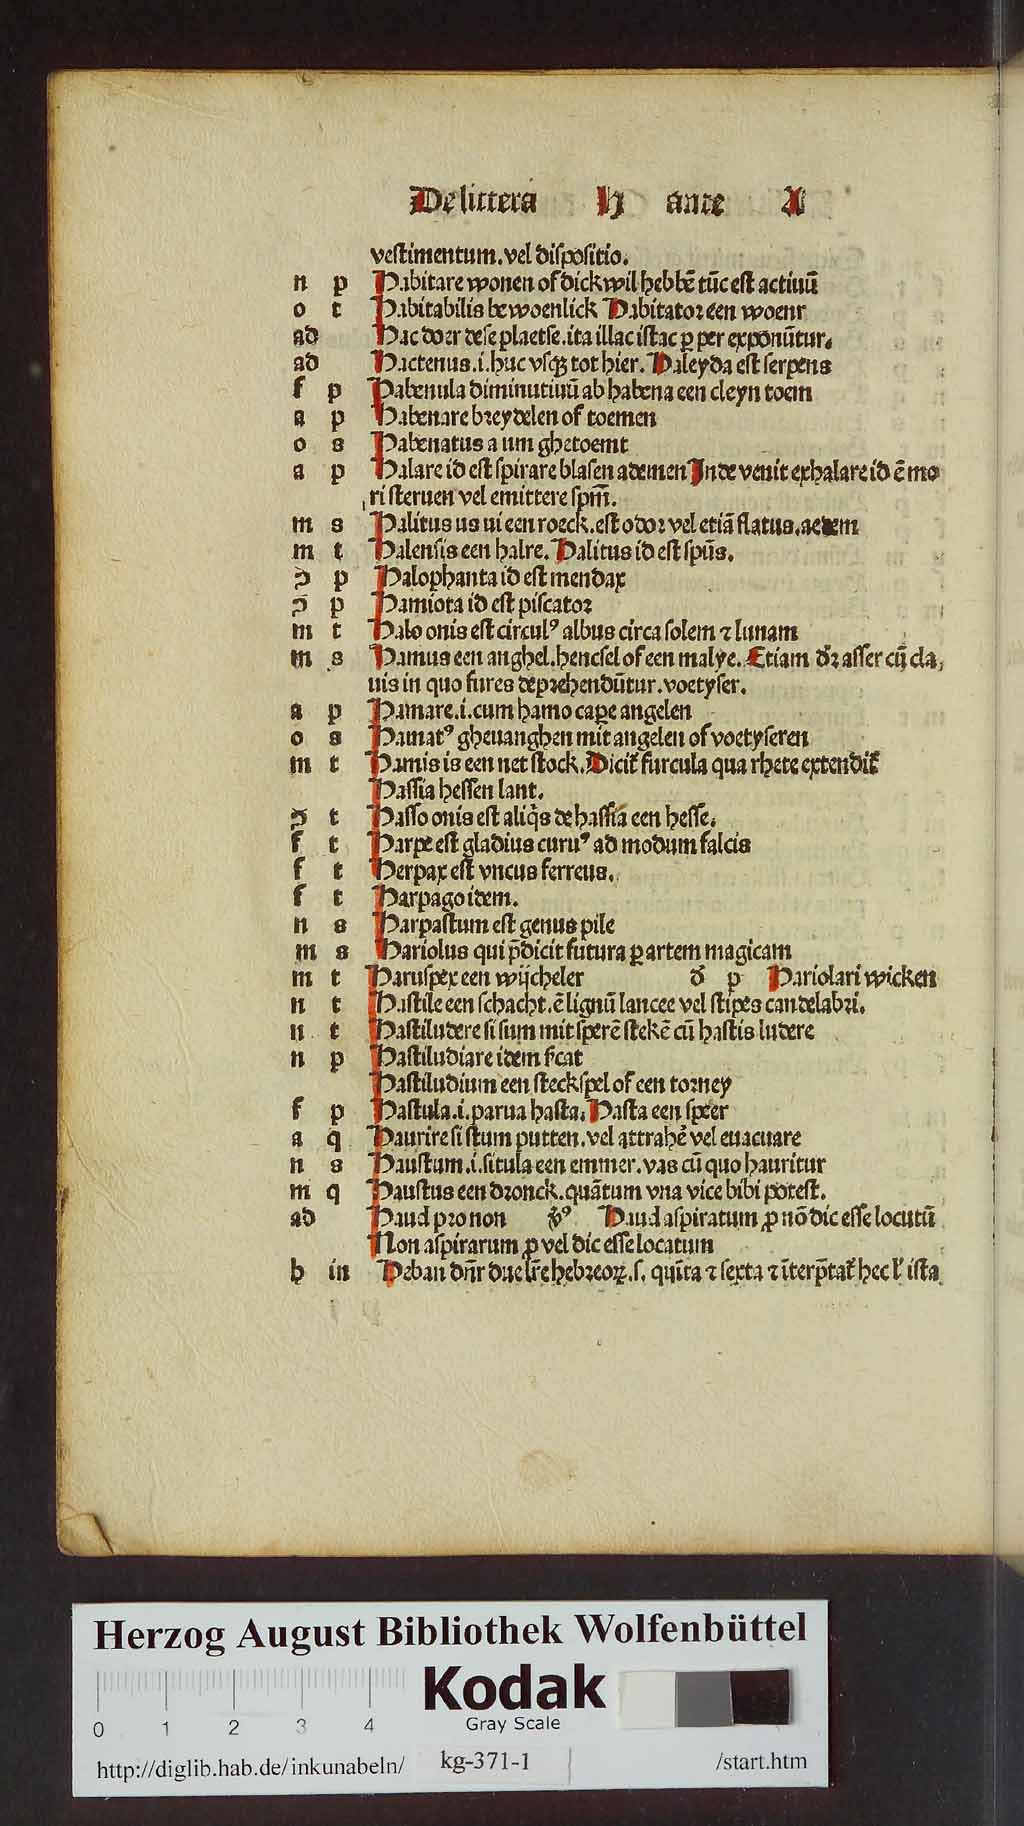 De littera H ante A
vestimentum. vel dispositio.
n p Habitare wonen of dick wil hebbē tūc est actiuū
o t Habitabilis bewoenlick Habitator een woenr
ad Hac doer dese plaetse. ita illac istac ꝑ per exponūtur.
ad Hactenus .i. huc vsqꝫ tot hier. Haleyda est serpens
f p Habenula diminutiuū ab habena een cleyn toem
a p Habenare breydelen of toemen
o s Habenatus a um ghetoemt
a p Halare id est spirare blasen ademen Inde venit exhalare id ē mo
ri steruen vel emittere spm̄.
m s Halitus us ui een roeck. est odor vel etiā flatus. aedem
m t Halensis een halre. Halitus id est spūs.
ↄ̄ p Halophanta id est mendax
ↄ̄ p Hamiota id est piscator
m t Halo onis est circulꝰ albus circa solem ⁊ lunam
m s Hamus een anghel. hencsel of een malye. Etiam dr̄ asser cū cla,
uis in quo fures deprehendūtur. voetyser.
a p Hamare .i. cum hamo capere angelen
o s Hamatꝰ gheuanghen mit angelen of voetyseren
m t Hamis is een net stock. Dicit᷑ furcula qua rhete extendit᷑
Hassia hessen lant.
ↄ̄ t Hasso onis est aliqs̄ de hassia een hesse.
f t Harpe est gladius curuꝰ ad modum falcis
f t Herpax est vncus ferreus.
f t Harpago idem.
n s Harpastum est genus pile
m s Hariolus qui p̄dicit futura ꝑ artem magicam
m t Haruspex een wijcheler đ p Hariolari wicken
n t Hastile een schacht. ē lignū lancee vel stipes candelabri.
n t Hastiludere si sum mit sperē stekē cū hastis ludere
n p Hastiludiare idem s̄cat
Hastiludium een steckspel of een torney
f p Hastula .i. parua hasta. Hasta een speer
a q Haurire si stum putten. vel attrahē vel euacuare
n s Haustum .i. situla een emmer. vas cū quo hauritur
m q Haustus een dronck. quātum vna vice bibi potest.
ad Haud pro non v̄ꝰ Haud aspiratum ꝓ nō dic esse locutū
Non aspirarum ꝓ vel dic esse locatum
h in Heban dn̄r due lr̄e hebreoꝝ .s. quīta ⁊ sexta ⁊ īterp̄tat᷑ hec l᷑ ista
Herzog August Bibliothek Wolfenbüttel
Kodak
Gray Scale
0 1 2 3 4
http://diglib.hab.de/inkunabeln/ kg-371-1 /start.htm